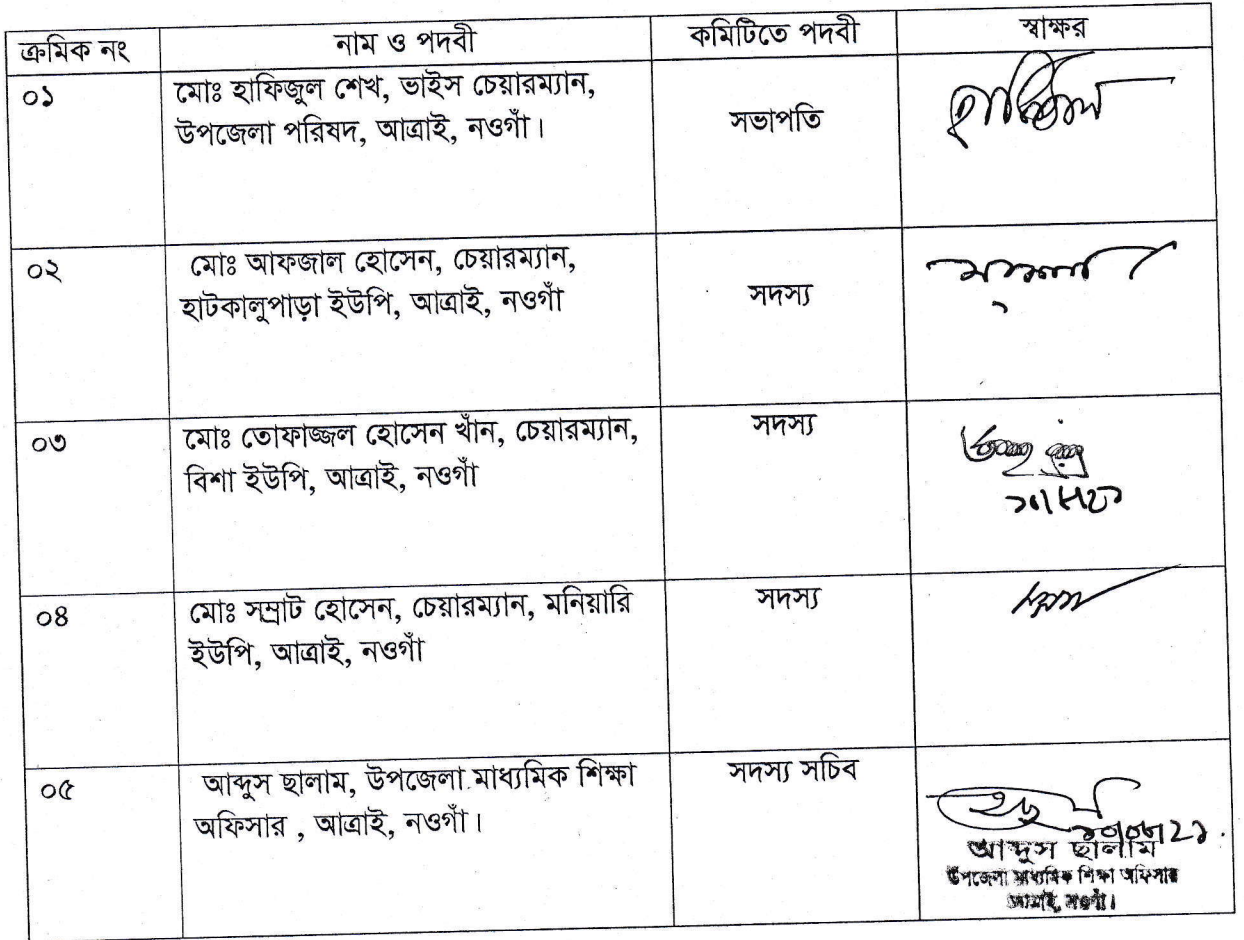 ক্রমিক নং নাম ও পদবী কমিটিতে পদবী স্বাক্ষর
০১ মোঃ হাফিজুল শেখ, ভাইস চেয়ারম্যান,
উপজেলা পরিষদ, আত্রাই, নওগাঁ। সভাপতি
০২ মোঃ আফজাল হোসেন, চেয়ারম্যান,
হাটকালুপাড়া ইউপি, আত্রাই, নওগাঁ সদস্য
০৩ মোঃ তোফাজ্জল হোসেন খাঁন, চেয়ারম্যান, সদস্য
বিশা ইউপি, আত্রাই, নওগাঁ
০৪ মোঃ সম্রাট হোসেন, চেয়ারম্যান, মনিয়ারি সদস্য
ইউপি, আত্রাই, নওগাঁ
০৫ আব্দুস ছালাম, উপজেলা মাধ্যমিক শিক্ষা সদস্য সচিব
অফিসার , আত্রাই, নওগাঁ।
আব্দুস ছালাম
উপজেলা মাধ্যমিক শিক্ষা অফিসার
আত্রাই, নওগাঁ।